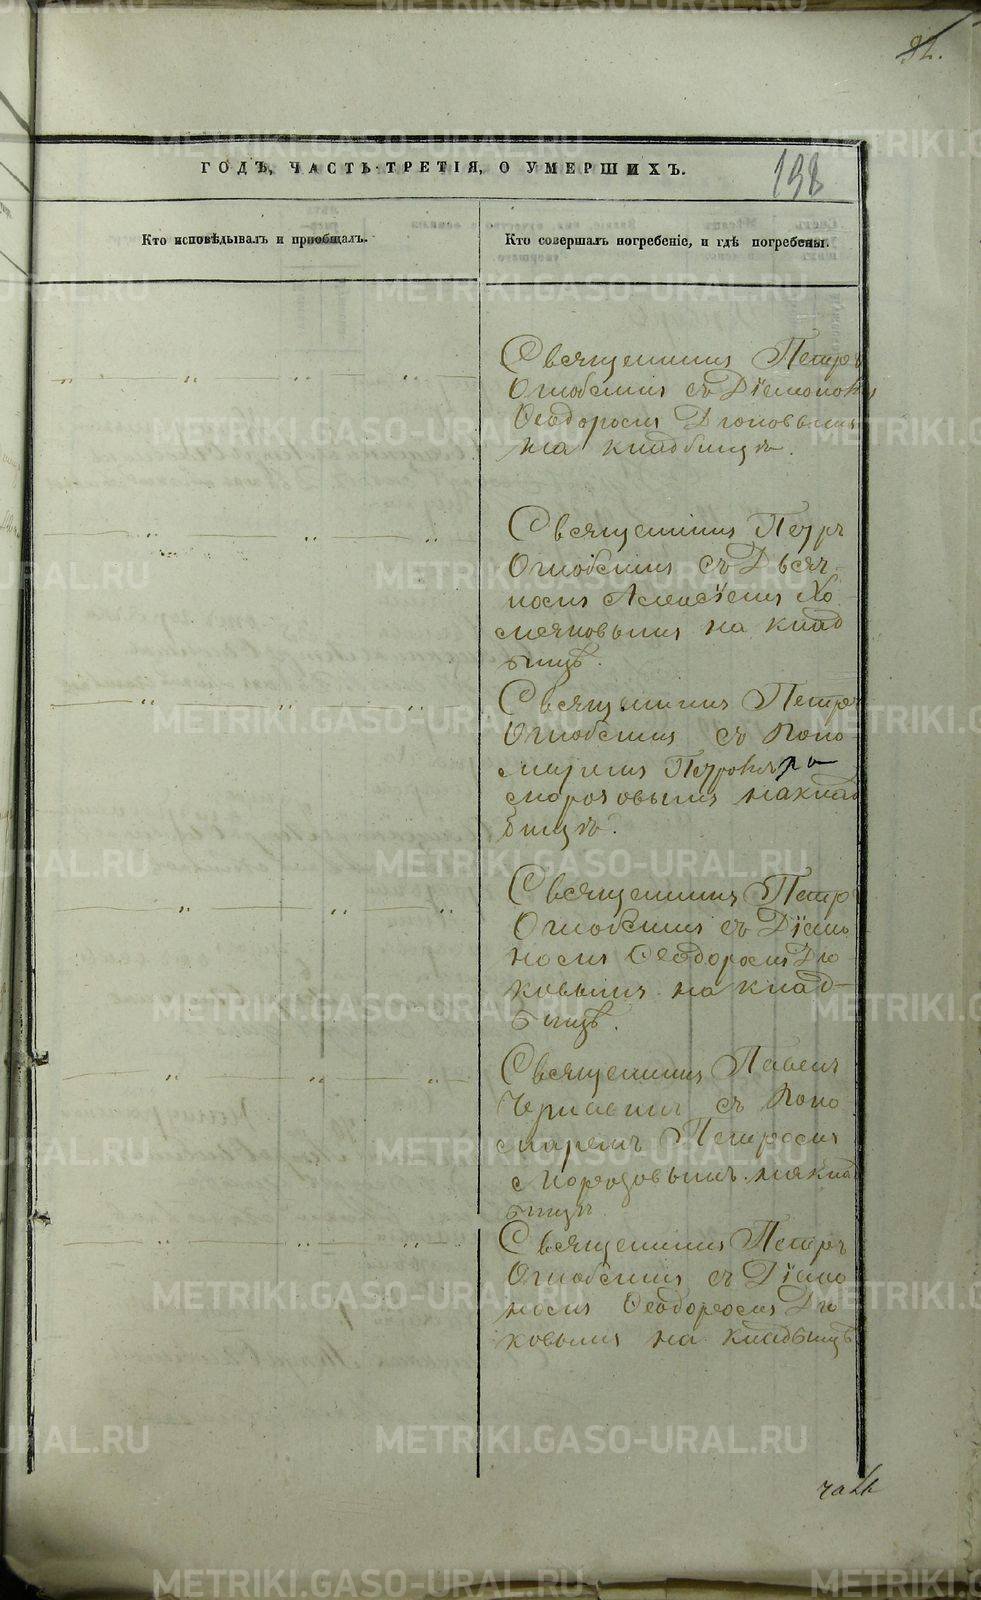 92.
ГОДЪ, ЧАСТЬ ТРЕТІЯ, О УМЕРШИХЪ.
198
Кто исповѣдывалъ и пріобщалъ.
Кто совершалъ погребеніе, и гдѣ погребены.
Священникъ Петръ
съ Діакономъ
Ѳеодоромъ
на кладбищѣ.
Священникъ Петръ
съ Дьяч
комъ Алексіемъ Хо
мяковымъ на клад
бищѣ.
Священникъ Петръ
съ Поно
Морозовымъ на клад
бищѣ.
Священникъ Петръ
съ Діако
номъ Ѳеодоромъ Дю
ковымъ на клад-
бищѣ.
Священникъ Павелъ
съ Поно
маремъ Петромъ
Морозовымъ на клад
бищѣ
Священникъ Петръ
съ Діако
номъ Ѳеодоромъ Дю
ковымъ на кладбищѣ
METRIKI.GASO-URAL.RU